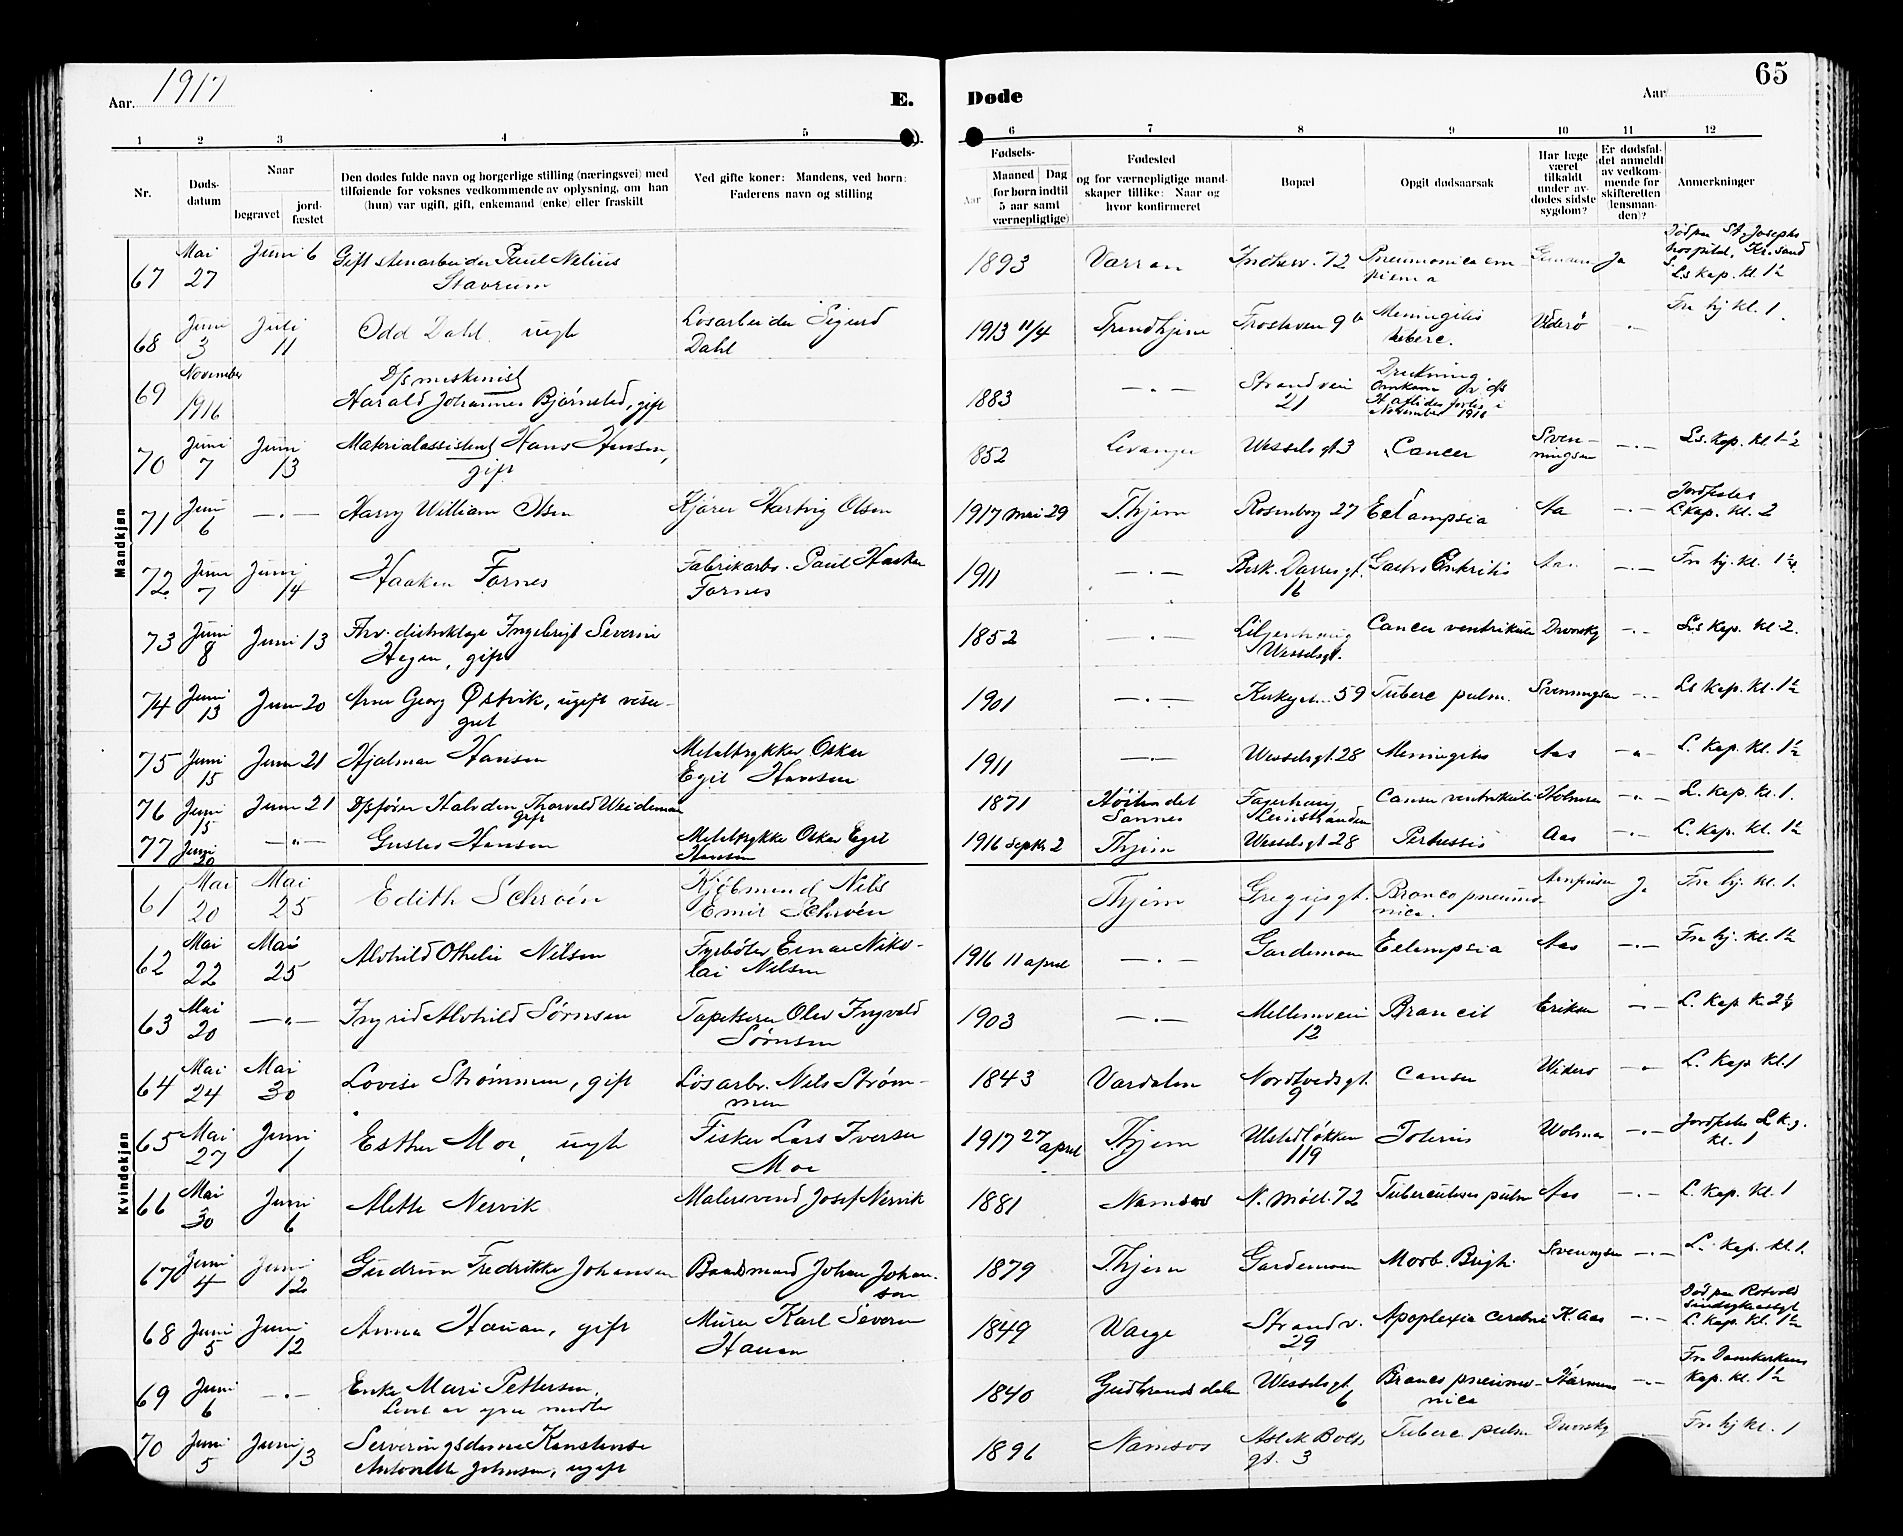 Aar. 1917
E. Døde
Aar
65
1 2 3 4 5 6 7 8 9 10 11 12
Nr.
Døds-
datum
Naar
begravet
jord-
fæstet
Den dødes fulde navn og borgerlige stilling (næringsvei) med
tilføiende for voksnes vedkommende av oplysning, om han
(hun) var ugift, gift, enkemand (enke) eller fraskilt
Ved gifte koner: Mandens, ved børn:
Faderens navn og stilling
Fødsels-
Aar
Maaned Dag
(for børn indtil
5 aar samt
værnepligtige)
Fødested
og for værnepligtige mand-
skaper tillike: Naar og
hvor konfirmeret
Bopæl
Opgit dødsaarsak
Har læge
været
tilkaldt
under av-
dødes sidste
sygdom?
Er dødsfal-
det anmeldt
av vedkom-
mende for
skifteretten
(lensman-
den)?
Anmerkninger
Mandkjøn
67 Mai 27 Juni 6 Gift stenarbeider Paul Nelius
Stavrum
1893 Værran Indherv. 72 Pneumonica em-
piema
Ja
Død paa St. Josephs
hospital, Kr. sand
S.
Ls kap. kl. 1½
68 Juni 3 Juli 11 Odd Dahl ugft
Løsarbeider Sigurd
Dahl
1913 11/4 Trondhjem Frostaven 9 b Meningitis
tuberc.
Viderø -„- Fra hj kl. 1.
69 November 1916 D/s maskinist
Harald Johannes Bjørnstad, gift
1883 -„- Strandvei
21
Drukning
November 1916
70 Juni 7 Juni 13 Materialassistent Hans Hansen,
gift
852 Levanger Wesselsgt 3 Cancer Sven-
ningsen
-„- Ls. kap. kl. 1½
71 Juni 6 -„- Harry William Olsen Kjører Hartvig Olsen
1917 mai 29 T.hjem Rosenborg 27 Eclampsia Aa -„- Jordfestes
L kap. kl. 2
72 Juni 7 Juni 14 Haaken Fornes Fabrikarb. Paul Haaken
Fornes
1911 -„- Bisk. Darresgt.
16
Gastro Enteritis Aa. -„- Fra hj. kl. 1¼
73 Juni 8 Juni 13 Fhv. distriktlæge Ingebrigt Severin
Hagen, gift
1852 -„- Liljenhaug
Wesselsgt.
Cancer ventrikuli Dvorsky -„- Ls kap. kl. 2.
74 Juni 13 Juni 20 Arne Georg Østvik, ugift viser-
gut
1901 -„- Kirkegt. 59 Tuberc pulm. Svenningsen -„- Ls kap. kl. 1½
75 Juni 15 Juni 21 Hjalmar Hansen Metaltrykker Oskar
Egil Hansen
1911 -„- Wesselsgt. 28 Meningitis Aas -„- L. kap. kl. 1½
76 Juni 15 Juni 21 D/sfører Halvdan Thorvald Weideman
gift
1871 Høilandet
Sannes
Fagerhaug
Cancer ventrikuli Holmsen -„- L. kap. kl. 1.
77 Juni 20 -„- Gustav Hansen Metaltrykker Oskar Egil
Hansen
1916 septbr 2 Thjem Wesselsgt 28 Pertussis Aas -„- L. kap. kl. 1½
Kvindekjøn
61 Mai 20 Mai 25 Edith Schrøen Kjøbmand Nils
Emil Schrøen
Thjem Gregusgt.
1
Bronco pneumo-
nica.
Ja Fra hj. kl. 1.
62 Mai 22 Mai 25 Alvhild Othelie Nilsen Fyrbøter Einar Niko-
lai Nilsen
1916 11 april -„- Gardemoen Eclampsia Aas -„- Fra hj. kl. 1½
63 Mai 20 -„- Ingrid Alvhild Sørnsen Tapetserer Olav Ingvald
Sørnsen
1903 -„- Mellemveien
12
Broncit Eriksen -„- L. kap k. 2¼
64 Mai 24 Mai 30 Lovise Strømmen, gift Løsarbr. Nils Strøm-
men
1843 Værdalen Nordtvedsgt.
9
Cancer Widerø -„- L. Kap kl. 1
65 Mai 27 Juni 1 Esther Moe, ugft Fisker Lars Iversen
Moe
1917 27 april Thjem Ulstadløkken
119
Icterus Wolmer -„- Jordfestes L k. j.
kl. 1
66 Mai 30 Juni 6 Alette Nervik Malersvend Josef Nervik
1881 Namsos N. Møll. 72 Tuberculoses pulm Aas -„- L. kap. kl. 1
67 Juni 4 Juni 12 Gudrun Fredrikke Johansen Baadsmand Johan Johan-
sen
1879 Thjem Gardemoen Morb. Brigh. Svenningsen -„- L. kap. kl. 1.
68 Juni 5 Juni 12 Anna Hauan, gift Murer Karl Severin
Hauan
1849 Strandv.
29
Apoplexia cerebri K. Aas -„- Død paa Rotvold
sindsykeasyl
L. kap. kl. 1½
69 Juni 6 -„- Enke Mari Pettersen.
Levet av egne midler
1840 Gudbrandsdalen Wesselsgt.
6
Bronco pneumo-
nica
-„- Fra Domkirkens
kap. kl. 1½
70 Juni 5 Juni 13 Serveringsdame Konstanse
Antonette Johnsen, ugift
1896 Namsos Aslak Bolts
gt. 3
Tuberc. pulm Dvorsky -„- Fra hj kl. 1